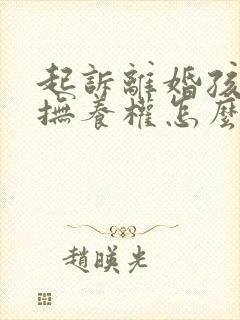 起訴離婚孩
撫養權怎麼
趙暎光